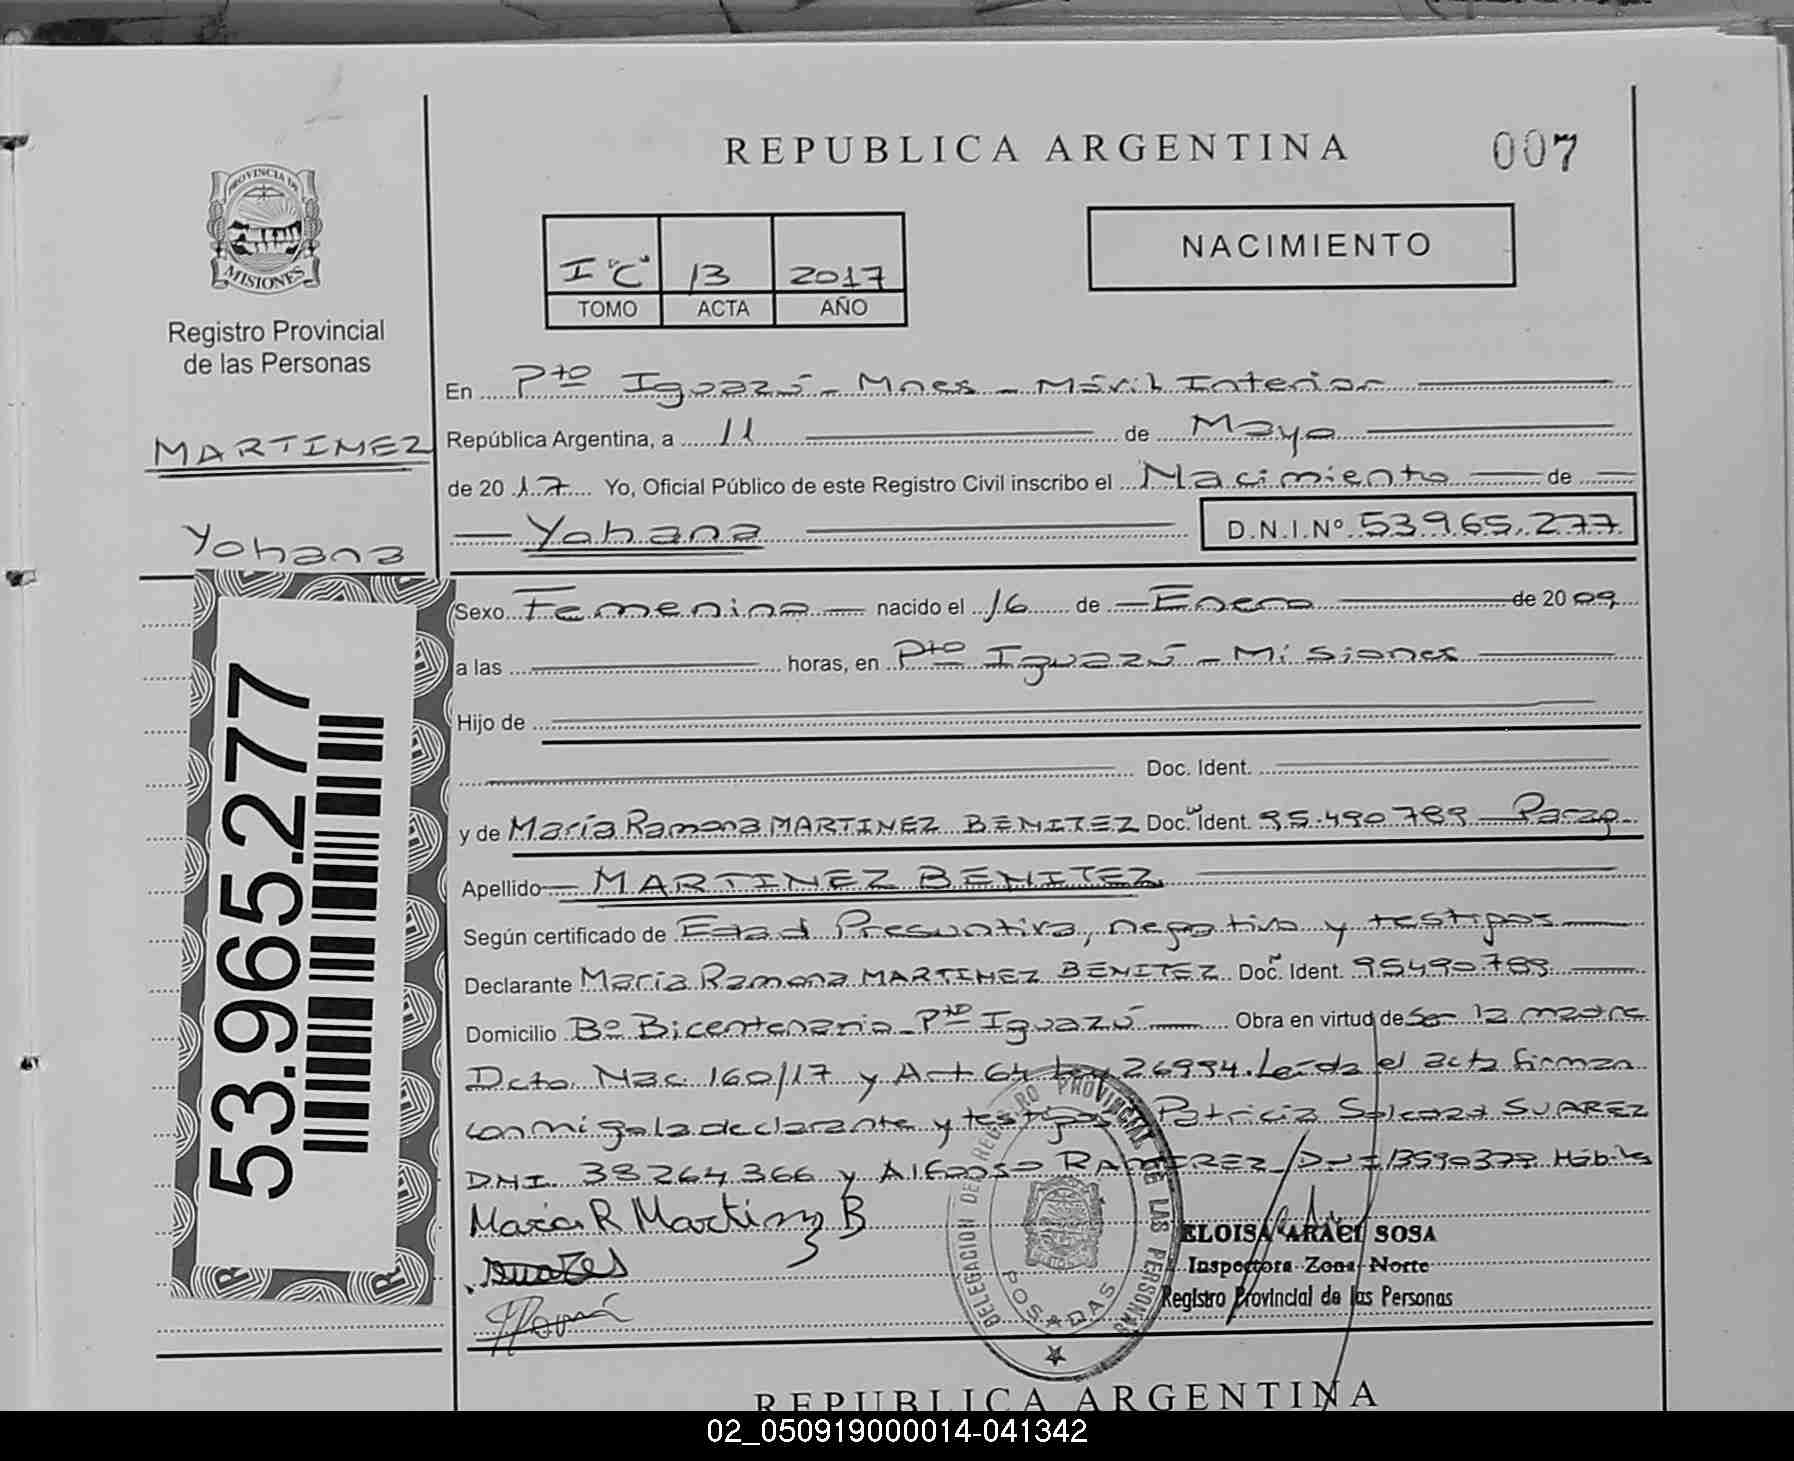 REPUBLICA ARGENTINA
007
PROVINCIA DE
MISIONES
Registro Provincial
de las Personas
I "C" 13 2017
TOMO ACTA AÑO
NACIMIENTO
MARTINEZ
Yohana
53.965.277
En Pto Iguazú - Mnes - Móvil Interior
República Argentina, a 11 de Mayo
de 2017 Yo, Oficial Público de este Registro Civil inscribo el Nacimiento de
Yohana D.N.I.Nº 53.965.277
Sexo Femenino nacido el 16 de Enero de 2009
a las horas, en Pto Iguazú - Misiones
Hijo de
Doc. Ident.
y de María Ramona MARTINEZ BENITEZ Doc. Ident. 95.490.789 Parag
Apellido MARTINEZ BENITEZ
Según certificado de Edad Presuntiva, negativo y testigos
Declarante María Ramona MARTINEZ BENITEZ Doc. Ident. 95490.789
Domicilio Bº Bicentenario - Pto Iguazú Obra en virtud de ser la madre
Dcto. Nac. 160/17 y Art 64 Ley 26994. Leída el acta firman
conmigo la declarante y testigos Patricia SUAREZ
DNI. 38264366 y Alfonso RAMIREZ DNI Hábiles
Maria R Martinez B
Suares
DELEGACION DEL REGISTRO PROVINCIAL DE LAS PERSONAS
POSADAS
ELOISA ARACI SOSA
Inspectora Zona Norte
Registro Provincial de las Personas
REPUBLICA ARGENTINA
02_050919000014-041342